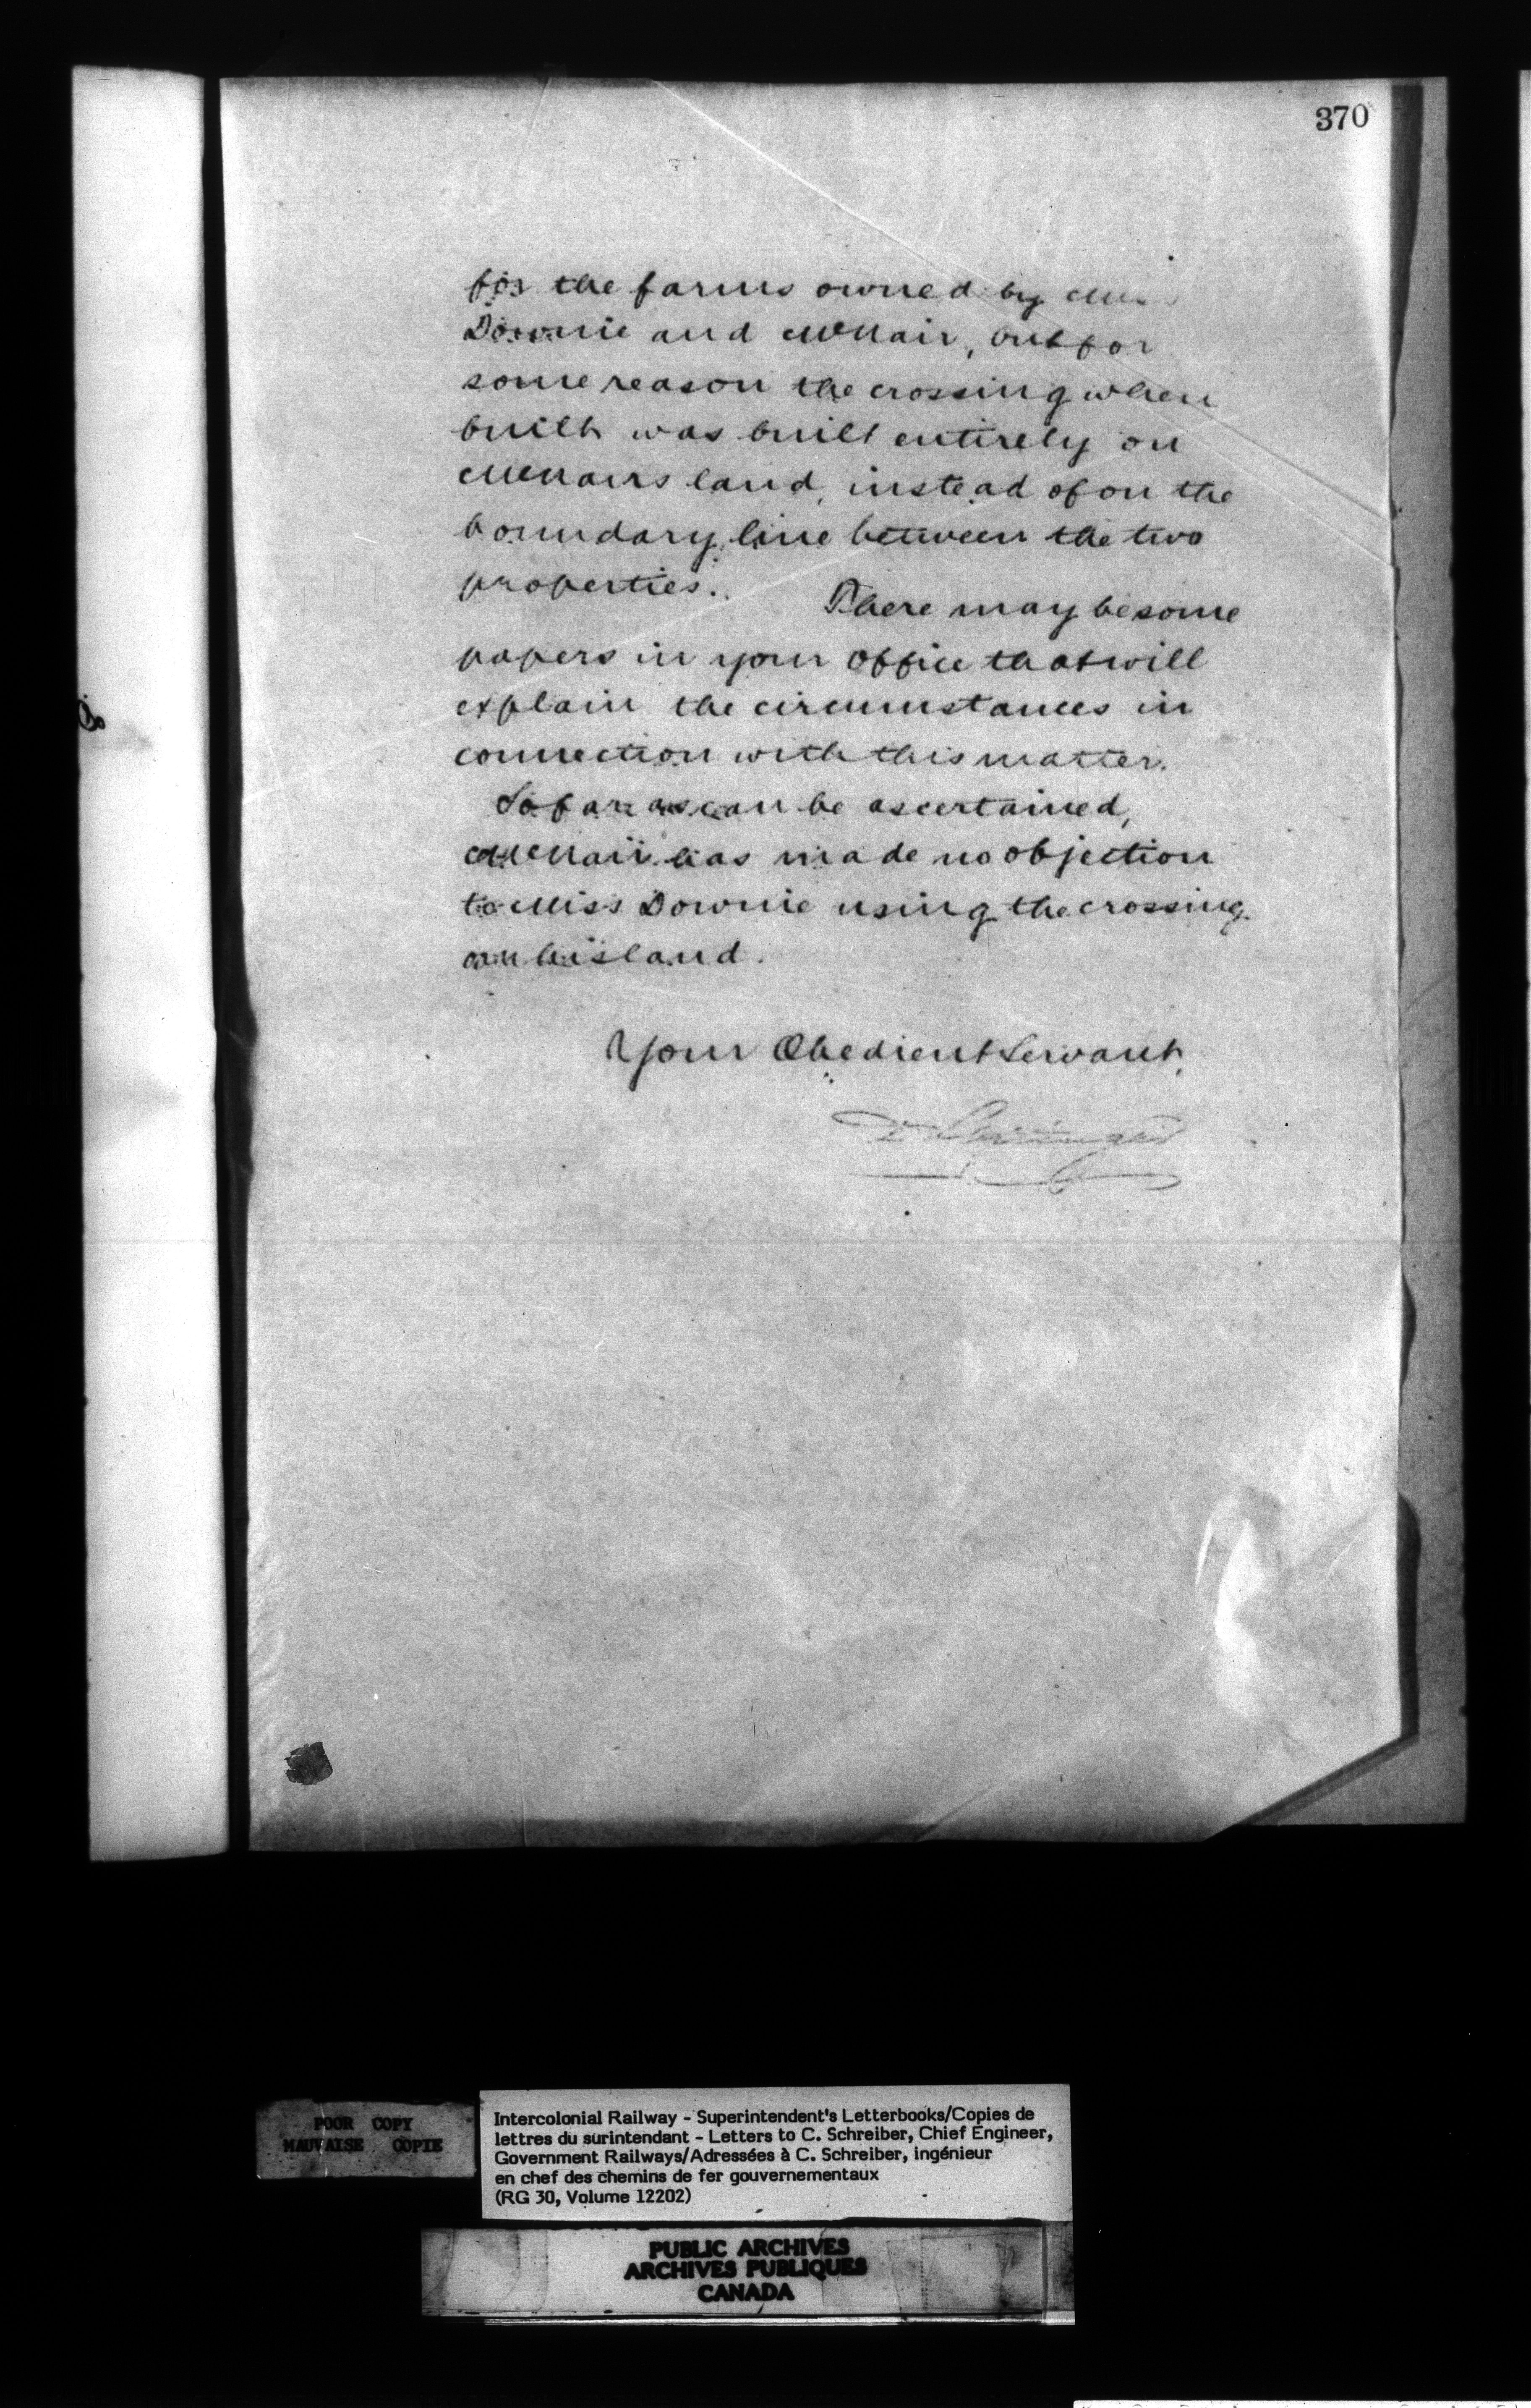 370
for the farms owned by Miss
Downie and McNair, but for
some reason the crossing when
built was built entirely on
McNairs land, instead of on the
boundary line between the two
properties.
There may be some
papers in your Office that will
explain the circumstances in
connection with this matter.
So far as can be ascertained,
McNair has made no objection
to Miss Downie using the crossing
on his land.
Your Obedient Servant,
POOR COPY
MAUVAISE COPIE
Intercolonial Railway - Superintendent's Letterbooks/Copies de
lettres du surintendant - Letters to C. Schreiber, Chief Engineer,
Government Railways/Adressées à C. Schreiber, ingénieur
en chef des chemins de fer gouvernementaux
(RG 30, Volume 12202)
PUBLIC ARCHIVES
ARCHIVES PUBLIQUES
CANADA